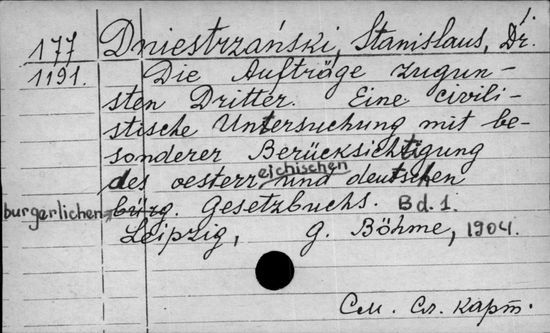 1.
177 Dniestrzański, Stanislaus, Dr.
1191. Die Aufträge zugun-
sten Dritter. Eine civili-
stische Untersuchung mit be-
sonderer Berücksichtigung
des oesterreichischen und deutschen
burgerlichen bürg. Gesetzbuchs. Bd. 1.
Leipzig, G. Böhme, 1904.
См. сл. карт.